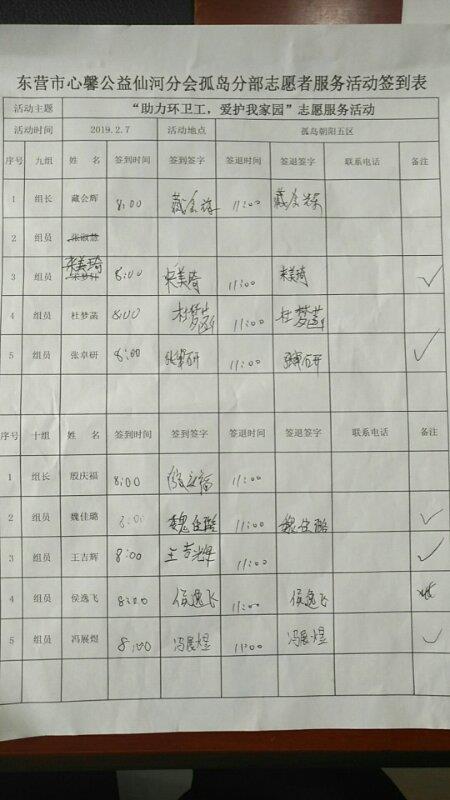 东营市心馨公益仙河分会孤岛分部志愿者服务活动签到表
活动主题 “助力环卫工，爱护我家园”志愿服务活动
活动时间 2019.2.7 活动地点 孤岛朝阳五区
序号 九组 姓 名 签到时间 签到签字 签退时间 签退签字 联系电话 备注
1 组长 藏会辉 8:00 藏会辉 11:00 藏会辉
2 组员 张淑慧
3 组员 宋美琦 8:00 宋美琦 11:00 宋美琦 ✓
4 组员 杜梦菡 8:00 杜梦菡 11:00 杜梦菡
5 组员 张卓研 8:00 张卓研 11:00 张卓研 ✓
序号 十组 姓 名 签到时间 签到签字 签退时间 签退签字 联系电话 备注
1 组长 殷庆福 8:00 殷庆福 11:00
2 组员 魏佳璐 8:00 魏佳璐 11:00 魏佳璐 ✓
3 组员 王吉辉 8:00 王吉辉 11:00 ✓
4 组员 侯逸飞 8:00 侯逸飞 11:00 侯逸飞
5 组员 冯展煜 8:00 冯展煜 11:00 冯展煜 ✓